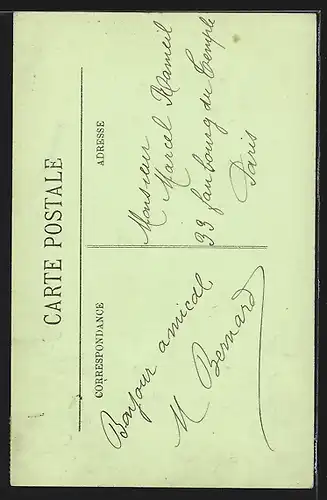 CARTE POSTALE
CORRESPONDANCE
Bonjour amical
M Bernard
ADRESSE
Monsieur
Marcel
33 faubourg du Temple
Paris